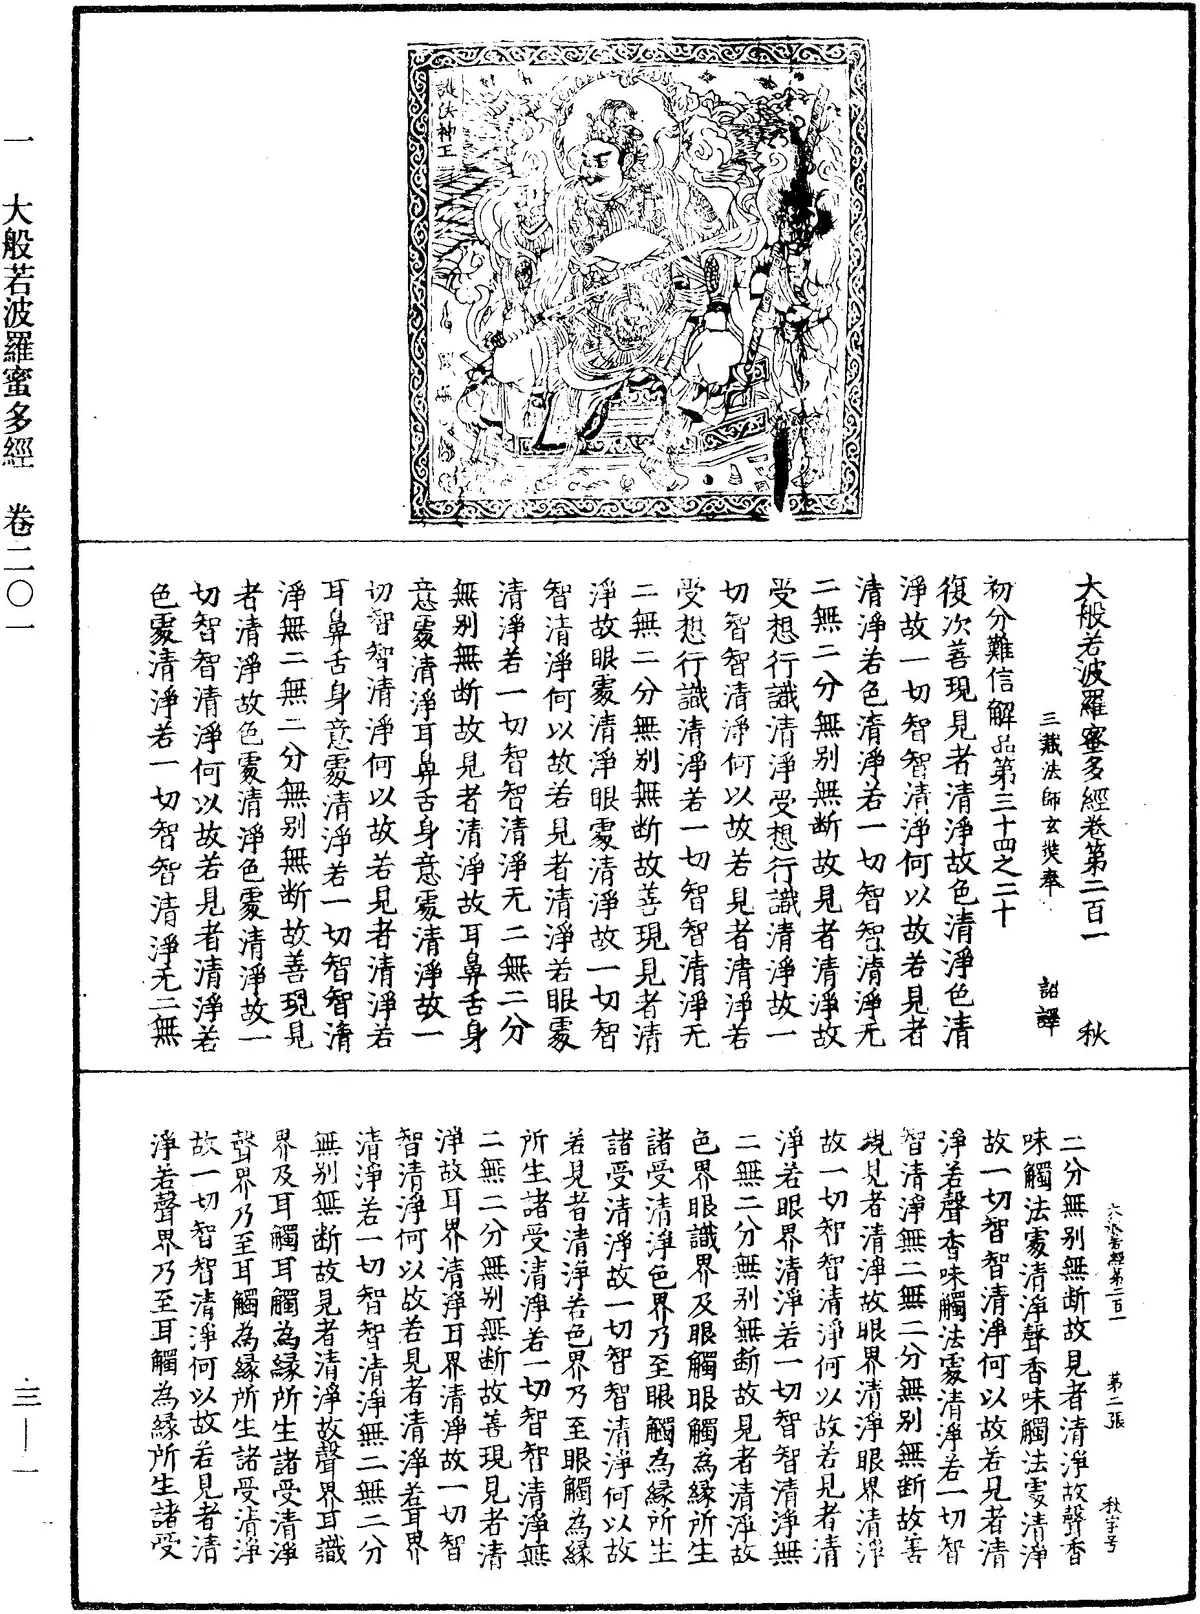 護法神王
大般若波羅蜜多經卷第二百一　秋
三藏法師玄奘奉　詔譯
初分難信解品第三十四之二十
復次善現見者清淨故色清淨色清
淨故一切智智清淨何以故若見者
清淨若色清淨若一切智智清淨无
二無二分無别無断故見者清淨故
受想行識清淨受想行識清淨故一
切智智清淨何以故若見者清淨若
受想行識清淨若一切智智清淨无
二無二分無别無断故善現見者清
淨故眼處清淨眼處清淨故一切智
智清淨何以故若見者清淨若眼處
清淨若一切智智清淨无二無二分
無别無断故見者清淨故耳鼻舌身
意處清淨耳鼻舌身意處清淨故一
切智智清淨何以故若見者清淨若
耳鼻舌身意處清淨若一切智智清
淨無二無二分無别無断故善現見
者清淨故色處清淨色處清淨故一
切智智清淨何以故若見者清淨若
色處清淨若一切智智清淨无二無
大般若經第二百一　第二張　秋字号
二分無别無断故見者清淨故聲香
味觸法處清淨聲香味觸法處清淨
故一切智智清淨何以故若見者清
淨若聲香味觸法處清淨若一切智
智清淨無二無二分無别無断故善
現見者清淨故眼界清淨眼界清淨
故一切智智清淨何以故若見者清
淨若眼界清淨若一切智智清淨無
二無二分無别無断故見者清淨故
色界眼識界及眼觸眼觸為緣所生
諸受清淨色界乃至眼觸為緣所生
諸受清淨故一切智智清淨何以故
若見者清淨若色界乃至眼觸為緣
所生諸受清淨若一切智智清淨無
二無二分無别無断故善現見者清
淨故耳界清淨耳界清淨故一切智
智清淨何以故若見者清淨若耳界
清淨若一切智智清淨無二無二分
無别無断故見者清淨故聲界耳識
界及耳觸耳觸為緣所生諸受清淨
聲界乃至耳觸為緣所生諸受清淨
故一切智智清淨何以故若見者清
淨若聲界乃至耳觸為緣所生諸受
一　大般若波羅蜜多經　卷二〇一
三—一